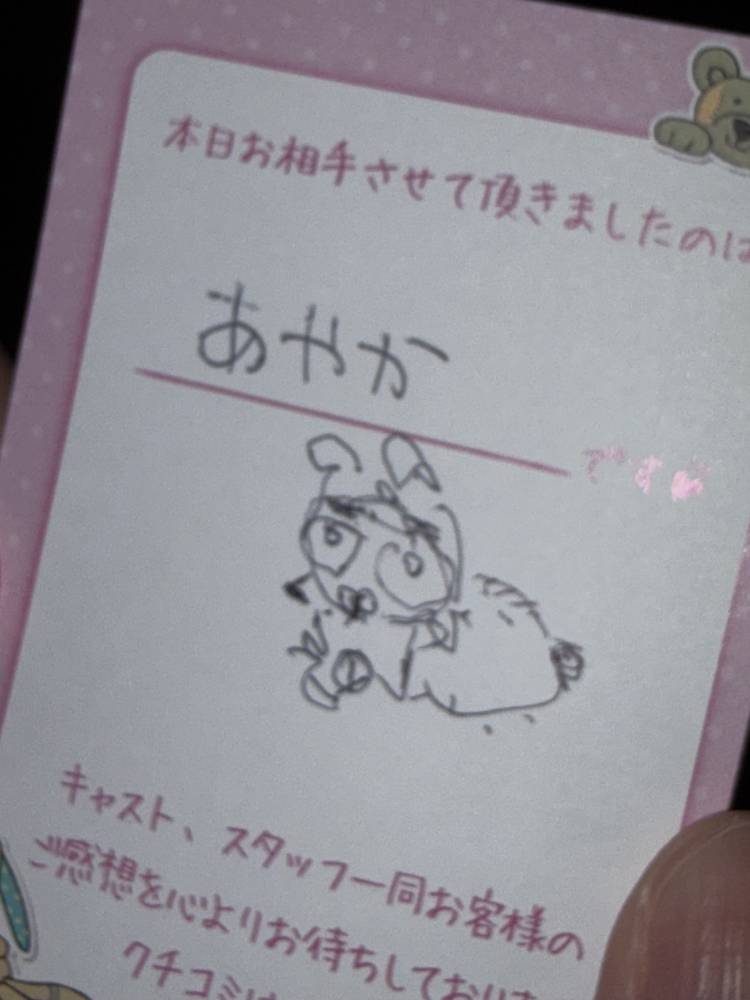 本日お相手させて頂きましたのは
あやか
です
キャスト、スタッフ一同お客様の
ご感想を心よりお待ちしておりま
クチコミは